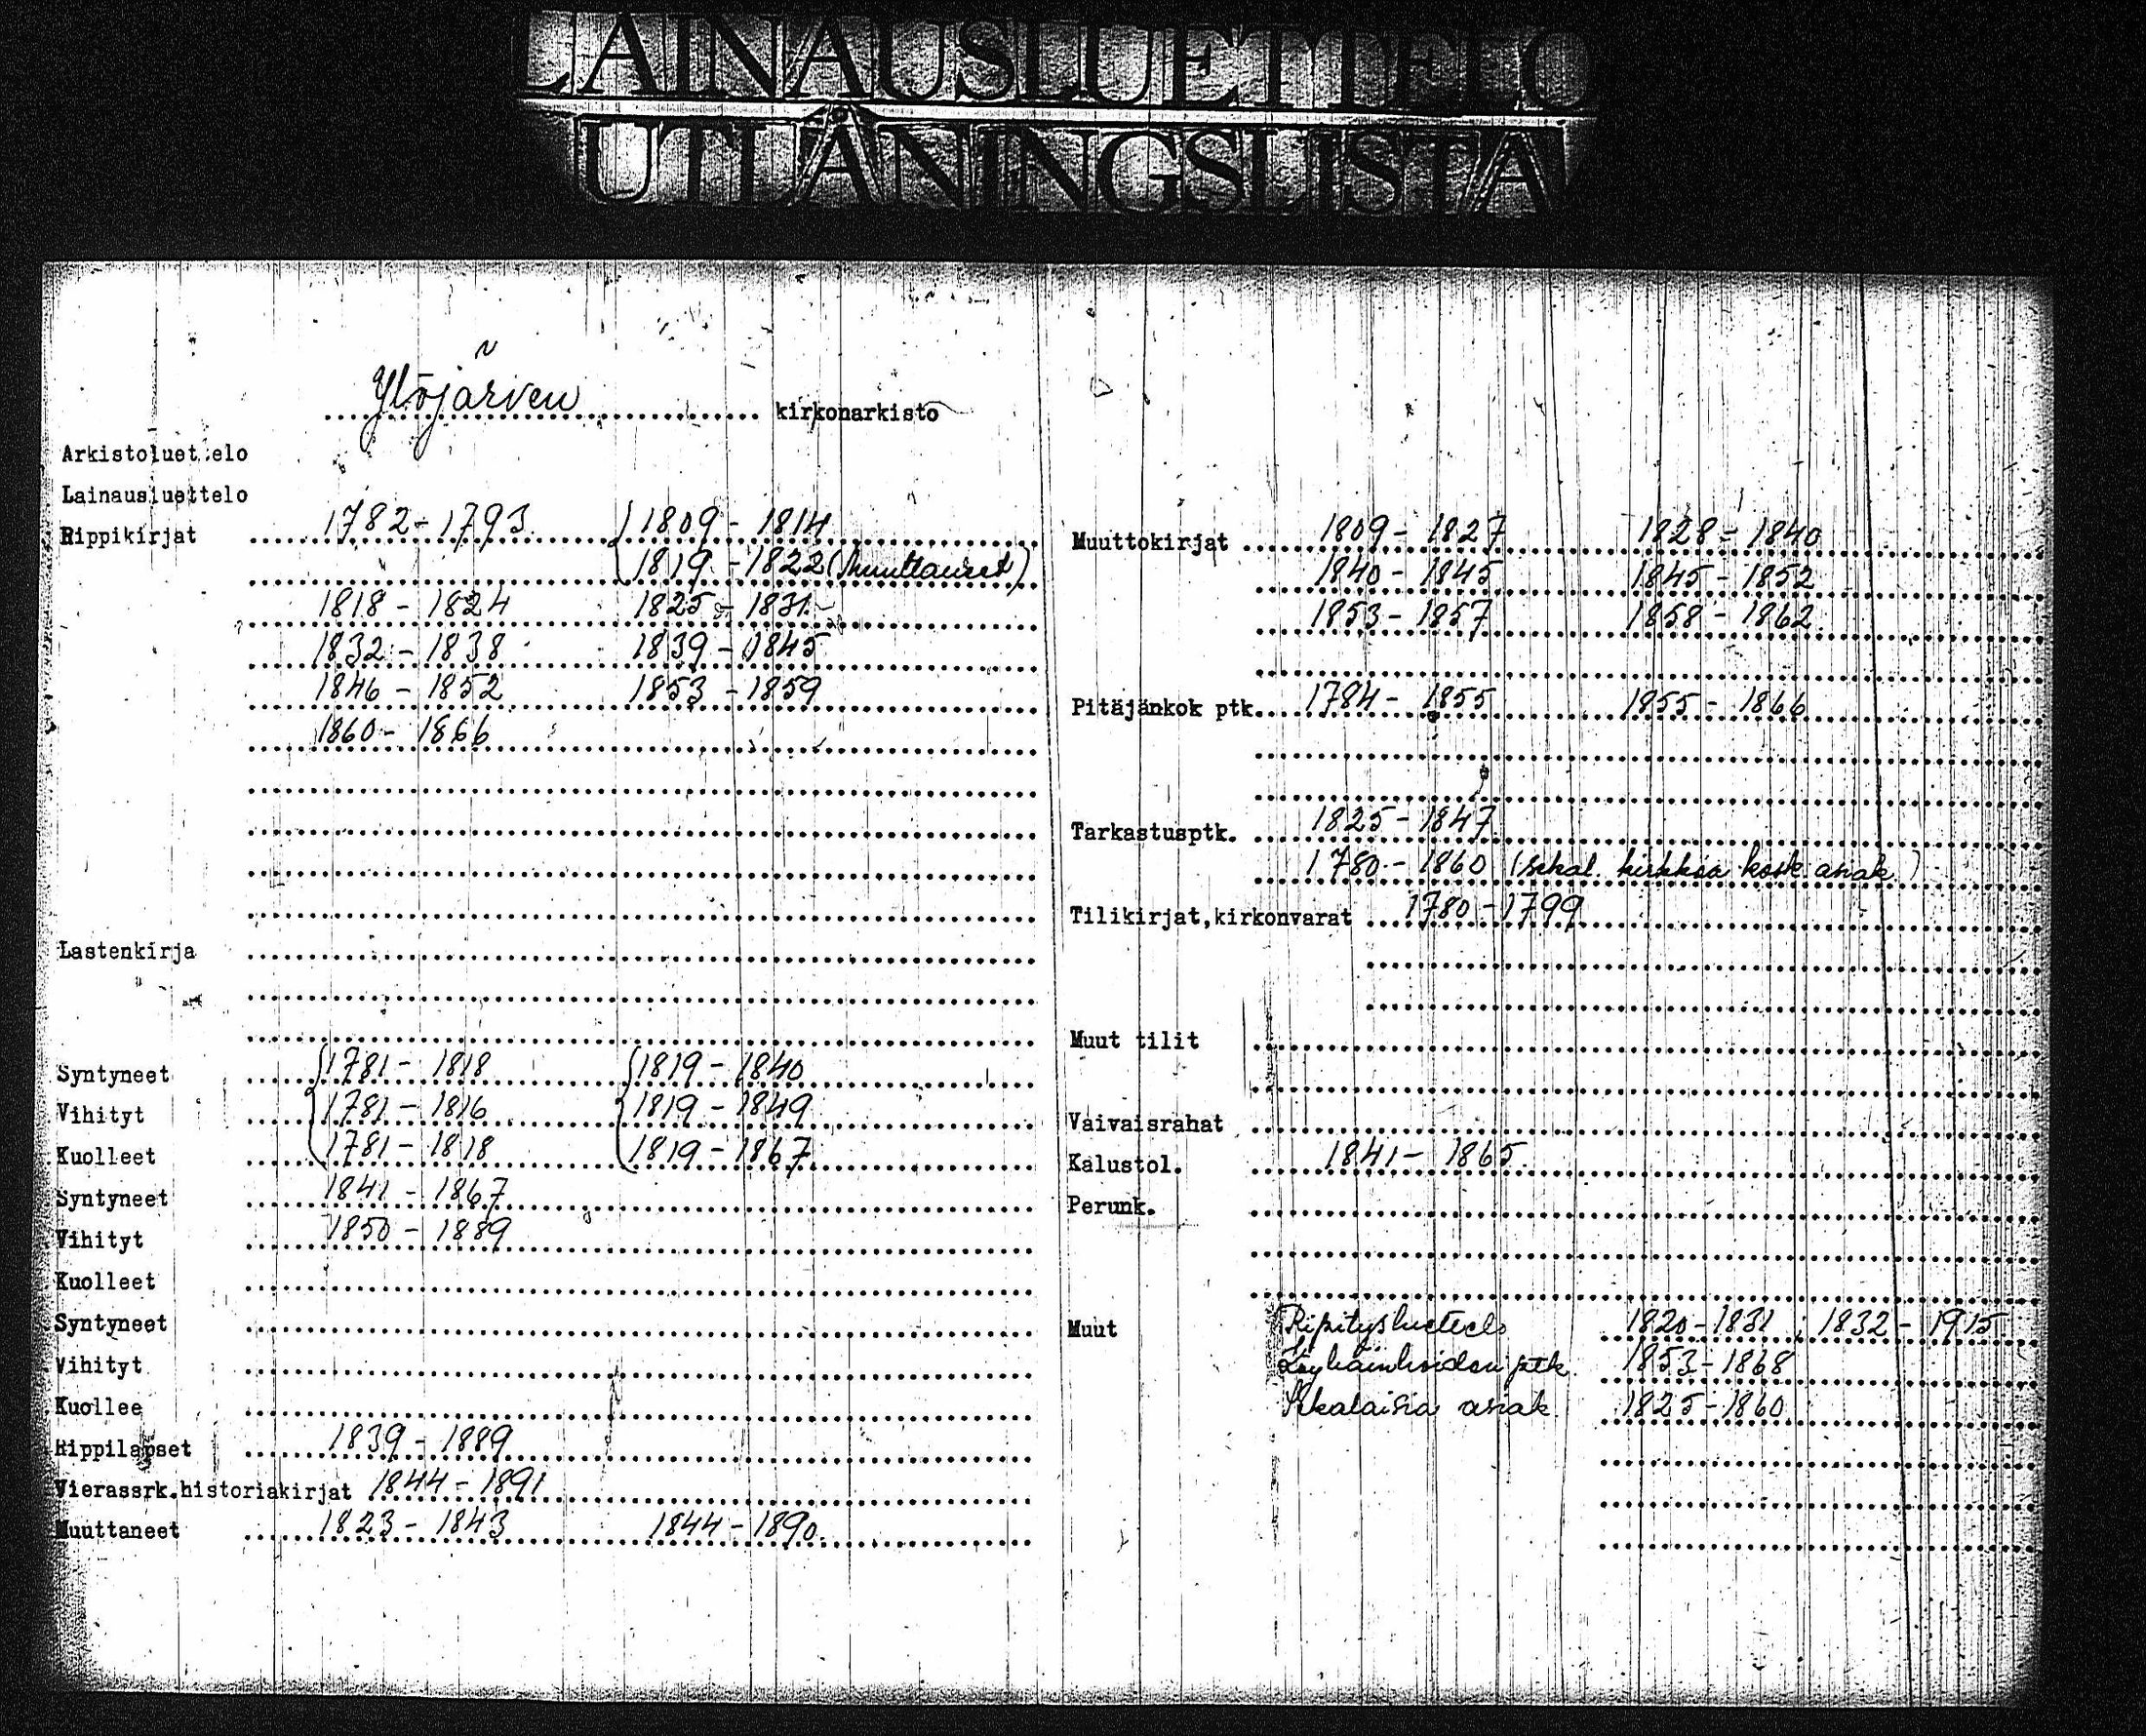 LAINAUSLUETTELO
UTLÅNINGSLISTA
Ylöjärven kirkonarkisto
Arkistoluettelo
Lainausluettelo
Rippikirjat 1782-1793 1809-1814
1819-1822 (Muuttaneet)
1818-1824 1825-1831
1832-1838 1839-1845
1846-1852 1853-1859
1860-1866
Lastenkirja
Syntyneet 1781-1818 1819-1840
Vihityt 1781-1816 1819-1849
Kuolleet 1781-1818 1819-1867
Syntyneet 1841-1867
Vihityt 1850-1889
Kuolleet
Syntyneet
Vihityt
Kuollee
Rippilapset 1839-1889
Vierassrk.historiakirjat 1844-1891
Muuttaneet 1823-1843 1844-1890
Muuttokirjat 1809-1827 1828-1840
1840-1845 1845-1852
1853-1857 1858-1862
Pitäjänkok ptk. 1784-1855 1855-1866
Tarkastusptk. 1825-1847
1780-1860 (sekal. kirkkoa kosk. asiak.)
Tilikirjat,kirkonvarat 1780-1799
Muut tilit
Vaivaisrahat
Kalustol. 1841-1865
Perunk.
Muut Ripitysluettelo 1820-1831; 1832-1915
Köyhäinhoidon ptk. 1853-1868
Sekalaisia asiak. 1825-1860